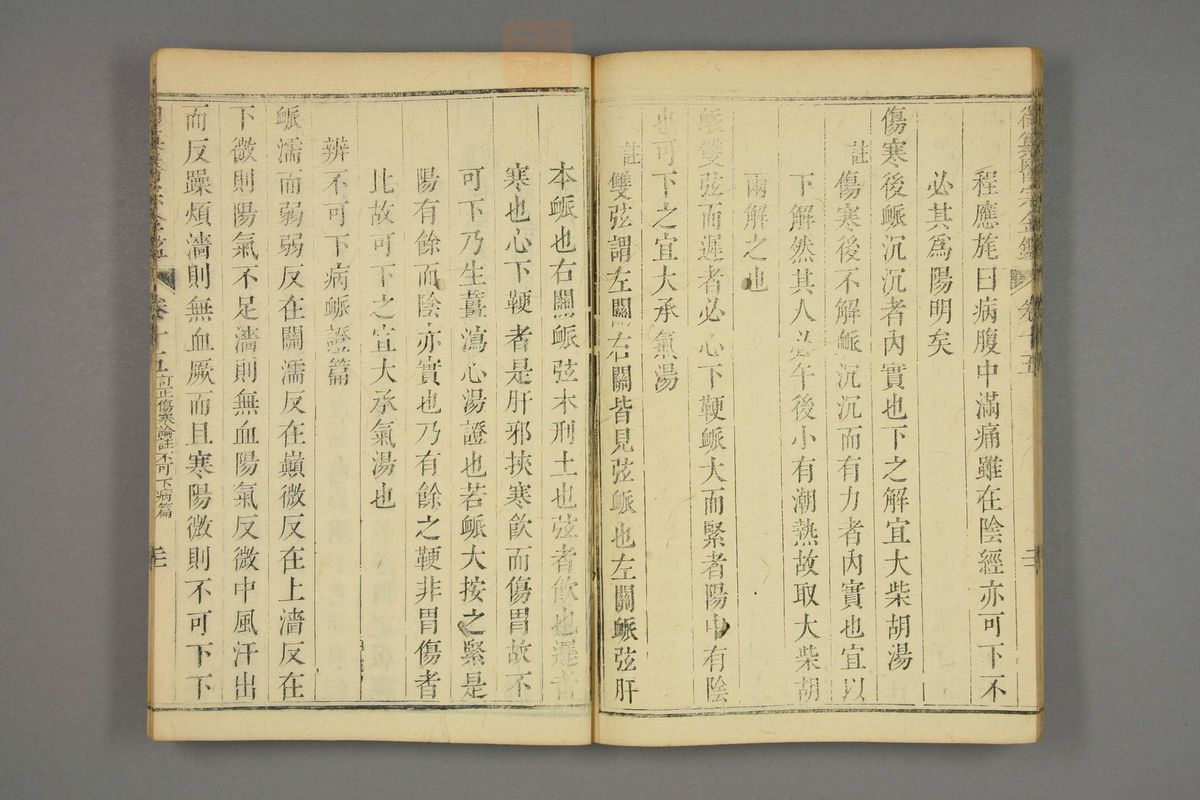 御纂醫宗金鑑 卷十五
程應旄曰病腹中滿痛雖在陰經亦可下不
必其為陽明矣
傷寒後脈沉沉者內實也下之解宜大柴胡湯
註 傷寒後不解脈沉沉而有力者內實也宜以
下解然其人必午後小有潮熱故取大柴胡
兩解之也
脈雙弦而遲者必心下鞕脈大而緊者陽中有陰
也可下之宜大承氣湯
註 雙弦謂左關右關皆見弦脈也左關脈弦肝
本脈也右關脈弦木刑土也弦者飲也遲者
寒也心下鞕者是肝邪挾寒飲而傷胃故不
可下乃生薑瀉心湯證也若脈大按之緊是
陽有餘而陰亦實也乃有餘之鞕非胃傷者
比故可下之宜大承氣湯也
辨不可下病脈證篇
脈濡而弱弱反在關濡反在巔微反在上濇反在
下微則陽氣不足濇則無血陽氣反微中風汗出
而反躁煩濇則無血厥而且寒陽微則不可下下
卷十五 訂正傷寒論註不可下病篇